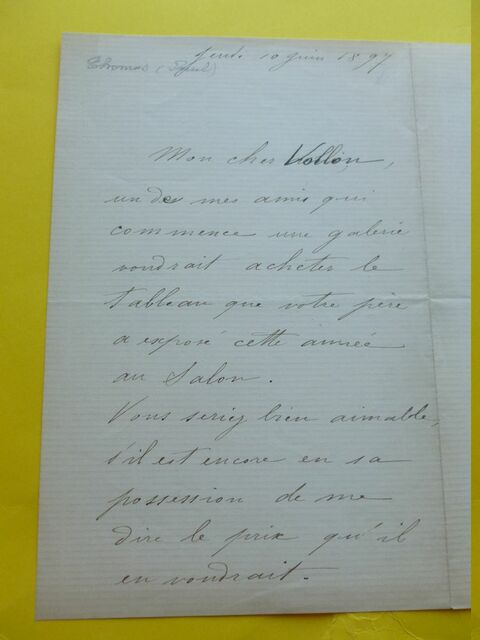 Jeudi 10 juin 1897
Thomas (Paul)
Mon cher Vollon,
un de mes amis qui
commence une galerie
voudrait acheter le
tableau que votre père
a exposé cette année
au Salon.
Vous seriez bien aimable,
s'il est encore en sa
possession de me
dire le prix qu'il
en voudrait.